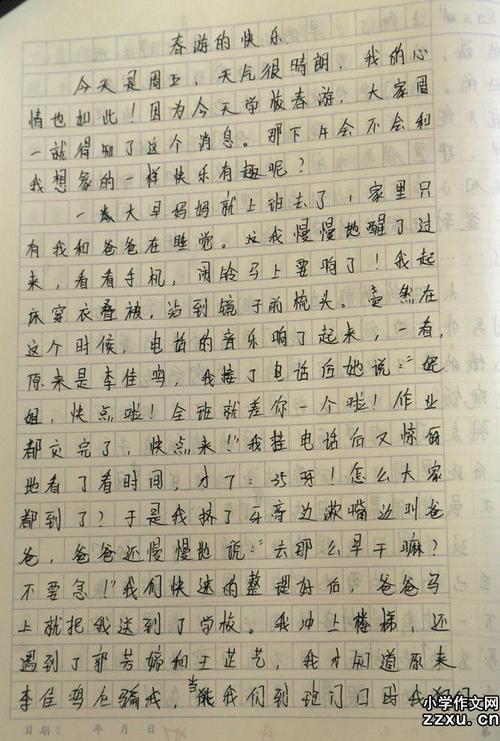 春游的快乐
今天是周五，天气很晴朗，我的心
情也如此！因为今天学校春游，大家周
一就得知了这个消息。那下午会不会和
我想象的一样快乐有趣呢？
一大早妈妈就上班去了，家里只
有我和爸爸在睡觉。我慢慢地醒了过
来，看看手机，闹铃马上要响了！我起
床穿衣叠被，站到镜子前梳头。竟然在
这个时候，电话的音乐响了起来，一看，
原来是李佳鸣，我接了电话后她说：“姐
姐，快点啦！全班就差你一个啦！作业
都交完了，快点来！”我挂电话后又惊讶
地看了看时间，才7：35呀！怎么大家
都到了？于是我挤了牙膏边漱嘴边叫爸
爸，爸爸还慢慢地说：“去那么早干嘛？
不要急！”我们快速的整理好后，爸爸马
上就把我送到了学校。我冲上楼梯，还
遇到了郭芳婷和王芷艺，我才知道原来
李佳鸣在骗我，当我们到班门口时我们
日期： 年 月 日
小学作文网
zzxu.cn